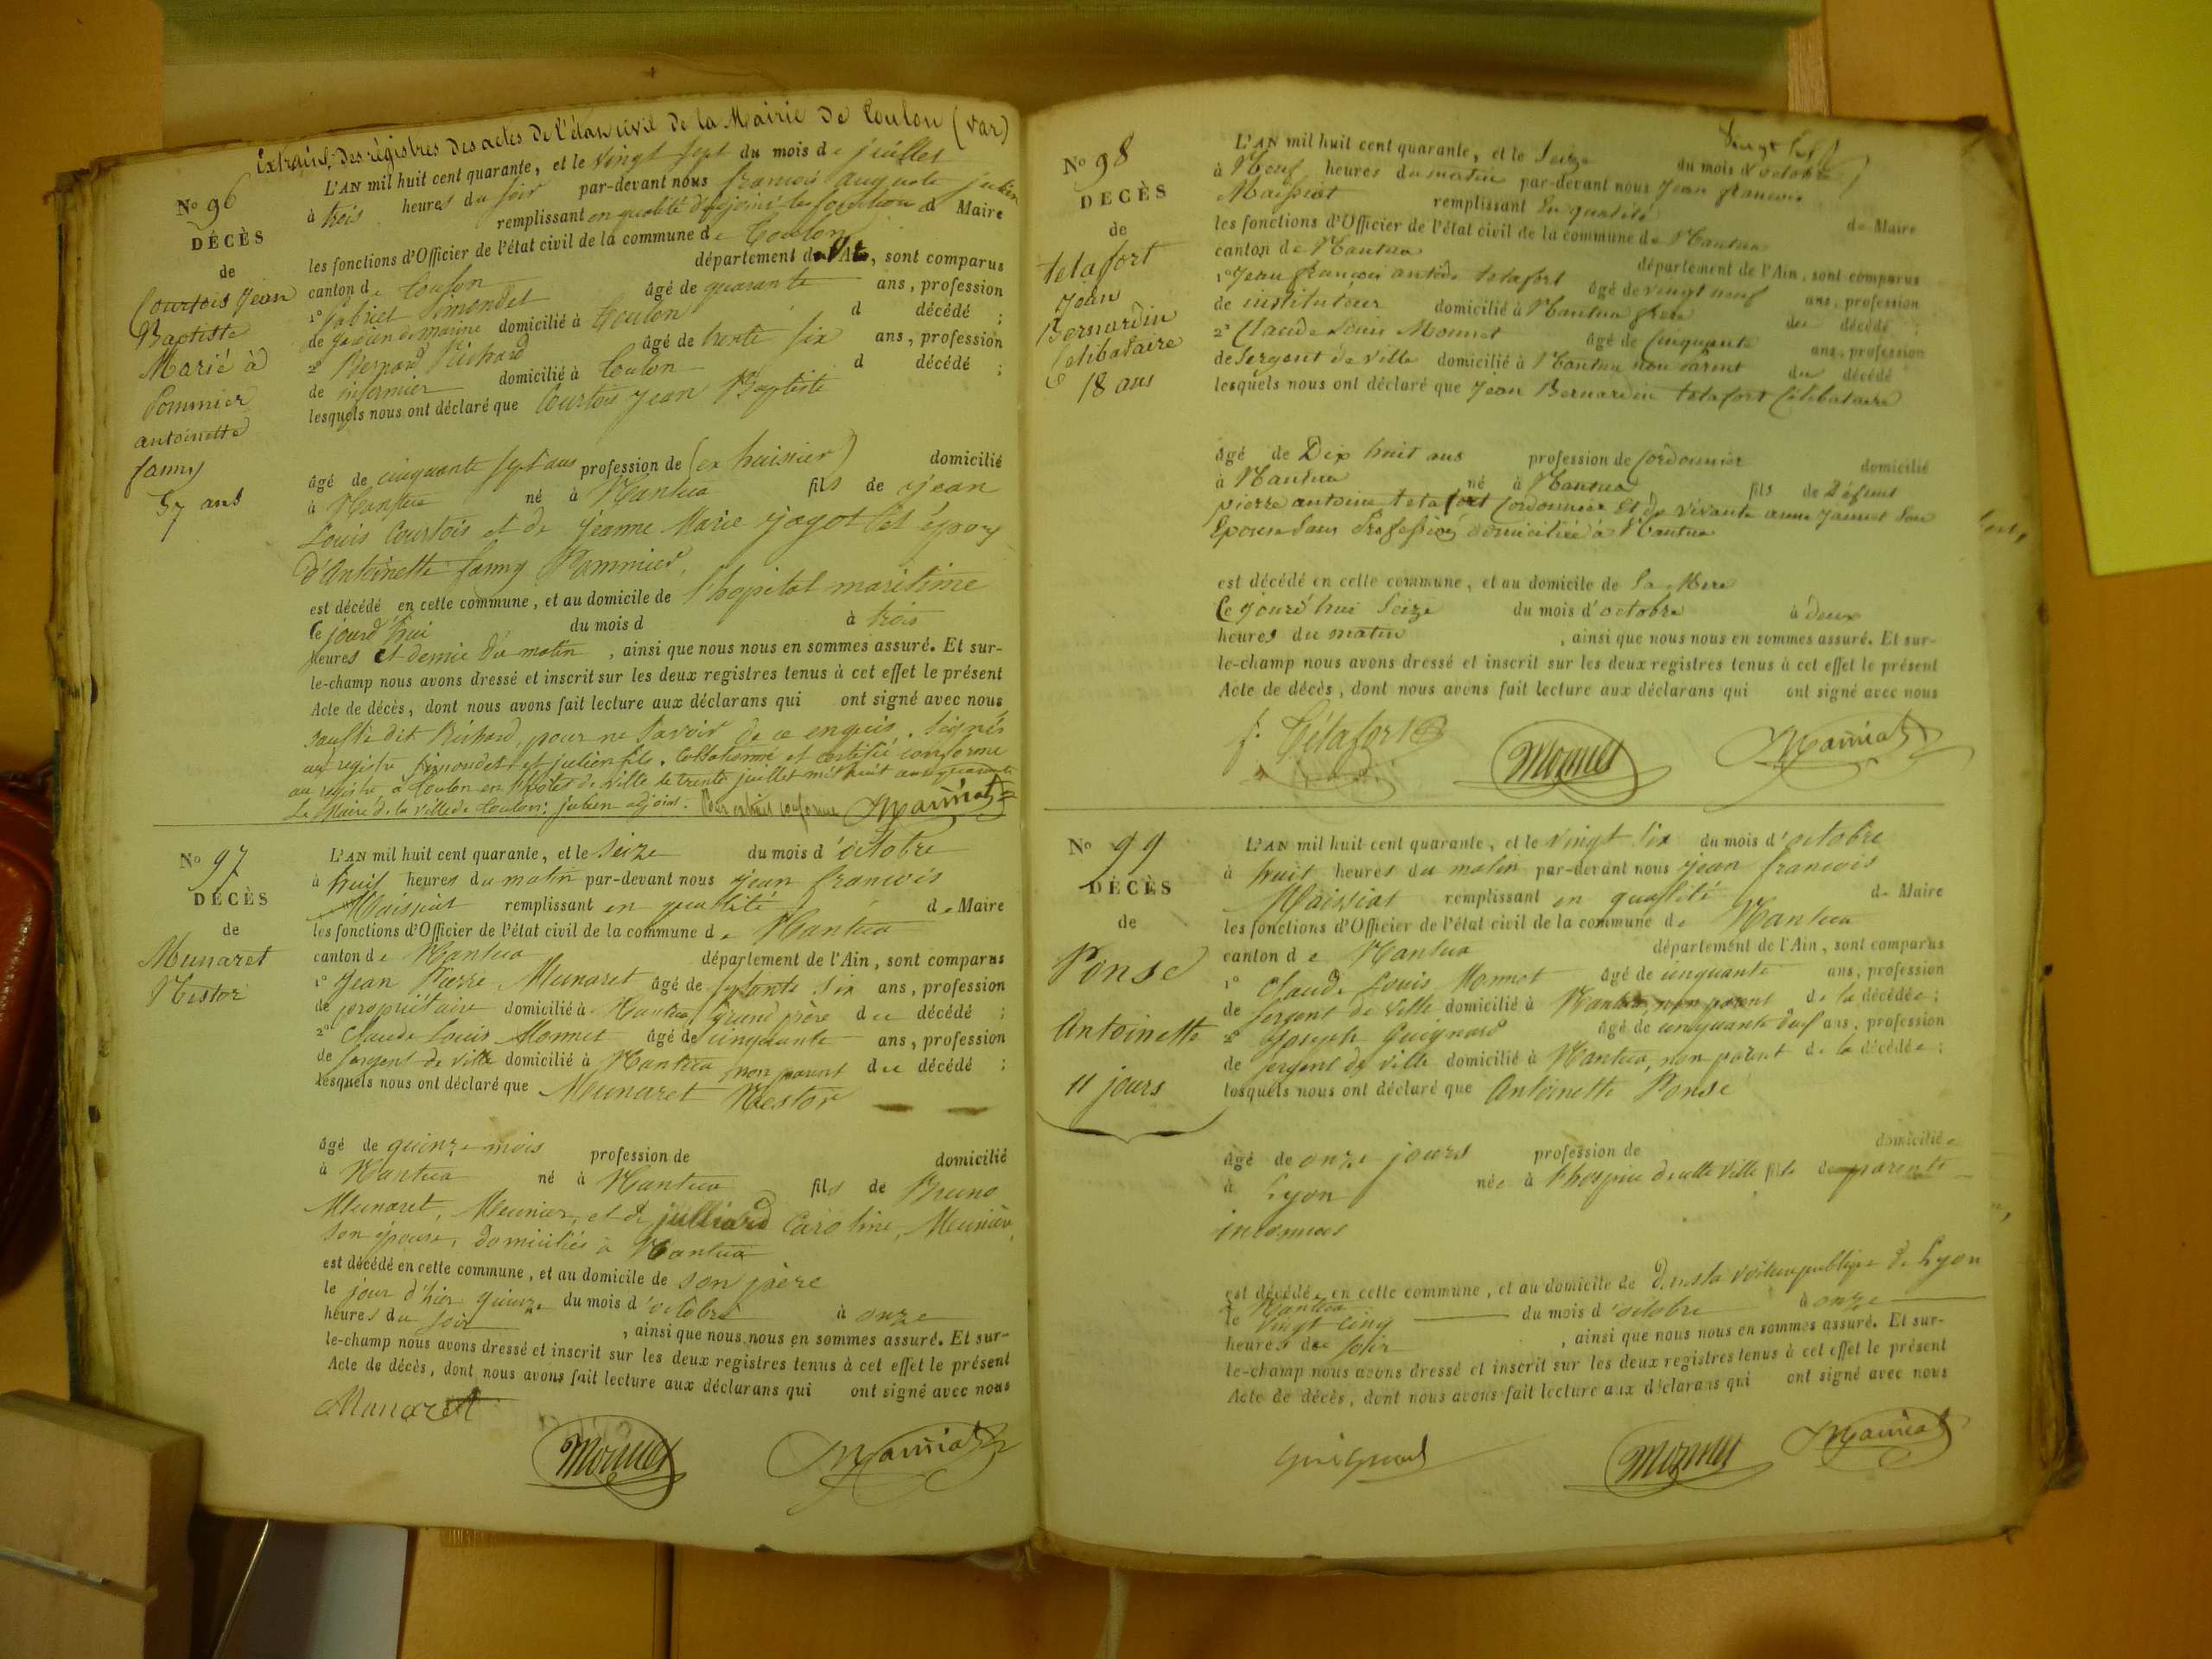 Extrait des régistres des actes de l'état civil de la Mairie de Toulon (Var)
N° 96
DÉCÈS
de
Courtois Jean
Baptiste
Marié à
Pommier
antoinette
fanny
57 ans
L'AN mil huit cent quarante, et le vingt sept du mois de juillet
à trois heures du soir par-devant nous françois auguste julien
remplissant en qualité d'adjoint les fonctions d Maire
les fonctions d'Officier de l'état civil de la commune de Toulon
canton de Toulon département du Var, sont comparus
1° Gabriel Simondet âgé de quarante ans, profession
de gardien de marine domicilié à Toulon d décédé ;
2° Bernard Richard âgé de trente six ans, profession
de infirmier domicilié à Toulon d décédé ;
lesquels nous ont déclaré que Courtois Jean Baptiste
âgé de cinquante sept ans profession de (ex huissier) domicilié
à Nantua né à Nantua fils de jean
Louis Courtois et de Jeanne Marie jagot et époux
d'Antoinette fanny Pommier.
est décédé en cette commune, et au domicile de l'hopital maritime
le jourd'hui du mois d à trois
heures et demie du matin, ainsi que nous nous en sommes assuré. Et sur-
le-champ nous avons dressé et inscrit sur les deux registres tenus à cet effet le présent
Acte de décès, dont nous avons fait lecture aux déclarans qui ont signé avec nous
sauf le dit Richard, pour ne savoir de ce enquis. Signés
au registre Simondet et julien fils. Collationné et certifié conforme
au registre à Toulon en l'hôtel de ville le trente juillet mil huit cent quarante
Le Maire de la ville de Toulon: julien adjoint. Pour extrait conforme Maissiat
N° 97
DÉCÈS
de
Munaret
Nestor
L'AN mil huit cent quarante, et le seize du mois d'octobre
à huit heures du matin par-devant nous jean francois
Maissiat remplissant en qualité de Maire
les fonctions d'Officier de l'état civil de la commune de Nantua
canton de Nantua département de l'Ain, sont comparus
1° Jean Pierre Munaret âgé de septante six ans, profession
de propriétaire domicilié à Nantua grand père du décédé ;
2° Claude Louis Monnet âgé de cinquante ans, profession
de sergent de ville domicilié à Nantua non parent du décédé ;
lesquels nous ont déclaré que Munaret Nestor
âgé de quinze mois profession de domicilié
à Nantua né à Nantua fils de Bruno
Munaret, Meunier, et de julliard Caroline, Meunière,
son épouse, domiciliés à Nantua
est décédé en cette commune, et au domicile de son père
le jour d'hier quinze du mois d'octobre à onze
heures du soir, ainsi que nous nous en sommes assuré. Et sur-
le-champ nous avons dressé et inscrit sur les deux registres tenus à cet effet le présent
Acte de décès, dont nous avons fait lecture aux déclarans qui ont signé avec nous
Munaret
Monnet Maissiat
N° 98
DÉCÈS
de
tetafort
Jean
Bernardin
Celibataire
18 ans
L'AN mil huit cent quarante, et le Seize du mois d'octobre
à Neuf heures du matin par-devant nous Jean francois
Maissiat remplissant En qualité de Maire
les fonctions d'Officier de l'état civil de la commune de Nantua
canton de Nantua département de l'Ain, sont comparus
1° Jean françois antide tetafort âgé de vingt neuf ans, profession
de instituteur domicilié à Nantua frere du décédé ;
2° Claude Louis Monnet âgé de Cinquante ans, profession
de Sergent de ville domicilié à Nantua non parent du décédé
lesquels nous ont déclaré que Jean Bernardin tetafort Célibataire
âgé de Dix huit ans profession de Cordonnier domicilié
à Nantua né à Nantua fils de Défunt
pierre antoine tetafort Cordonnier Et de vivante anne Jannet Son
Epouse Sans Profession domiciliée à Nantua
est décédé en cette commune, et au domicile de Sa Mere
Ce jourd'hui Seize du mois d'octobre à deux
heures du matin, ainsi que nous nous en sommes assuré. Et sur-
le-champ nous avons dressé et inscrit sur les deux registres tenus à cet effet le présent
Acte de décès, dont nous avons fait lecture aux déclarans qui ont signé avec nous
f. Tétafort
Monnet Maissiat
N° 99
DÉCÈS
de
Ponse
Antoinette
11 jours
L'AN mil huit cent quarante, et le vingt six du mois d'octobre
à huit heures du matin par-devant nous jean francois
Maissiat remplissant en qualité de Maire
les fonctions d'Officier de l'état civil de la commune de Nantua
canton de Nantua département de l'Ain, sont comparus
1° Claude Louis Monnet âgé de cinquante ans, profession
de sergent de ville domicilié à Nantua, non parent de la décédée ;
2° Joseph Guignard âgé de cinquante neuf ans, profession
de sergent de ville domicilié à Nantua, non parent de la décédée ;
lesquels nous ont déclaré que Antoinette Ponse
âgé de onze jours profession de domiciliée
à Lyon née à l'hospice de cette ville fille de parents
inconnus
est décédée en cette commune, et au domicile de Dans la voiture publique de Lyon
à Nantua
le vingt cinq du mois d'octobre à onze
heures du soir, ainsi que nous nous en sommes assuré. Et sur-
le-champ nous avons dressé et inscrit sur les deux registres tenus à cet effet le présent
Acte de décès, dont nous avons fait lecture aux déclarans qui ont signé avec nous
Guignard Monnet Maissiat